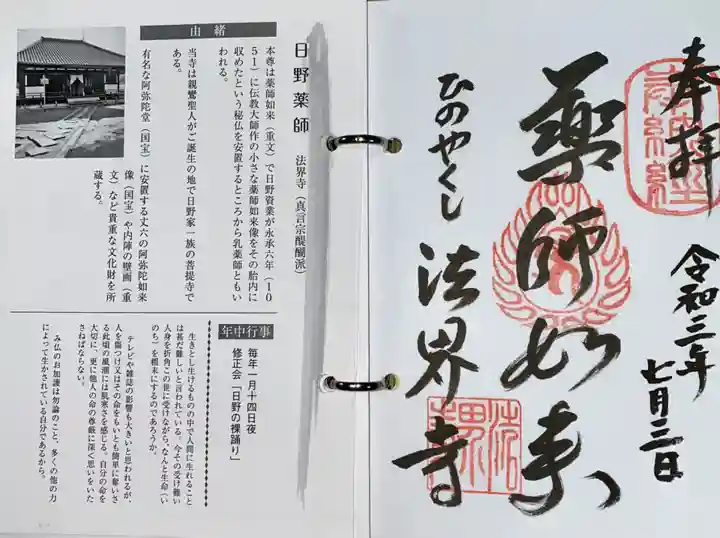 由緒
日野薬師 法界寺(真言宗醍醐派)
本尊は薬師如来(重文)で日野資業が永承六年(10
51)に伝教大師作の小さな薬師如来像をその胎内に
収めたという秘仏を安置するところから乳薬師ともい
われる。
当寺は親鸞聖人がご誕生の地で日野家一族の菩提寺で
ある。
有名な阿弥陀堂(国宝)に安置する丈六の阿弥陀如来
像(国宝)や内陣の壁画(重
文)など貴重な文化財を所
蔵する。
年中行事
毎年一月十四日夜
修正会「日野の裸踊り」
生きとし生けるものの中で人間に生れること
は甚だ難しいと言われている。今その受け難い
人身を折角この世に受けながら、なんと生命(い
のち)を粗末にするのであろうか。
テレビや雑誌の影響も大きいと思われるが、
人を傷つけ又はその命をもいとも簡単に奪いさ
る此頃の風潮には肌寒さを感じる。自分の命を
大切に、更に他人の命の尊厳に深く思いをいた
さねばならない。
み仏のお加護は勿論のこと、多くの他の力
によって生かされている自分であるから。
奉拝
令和三年
七月三日
薬師如来
ひのやくし
法界寺
法界寺